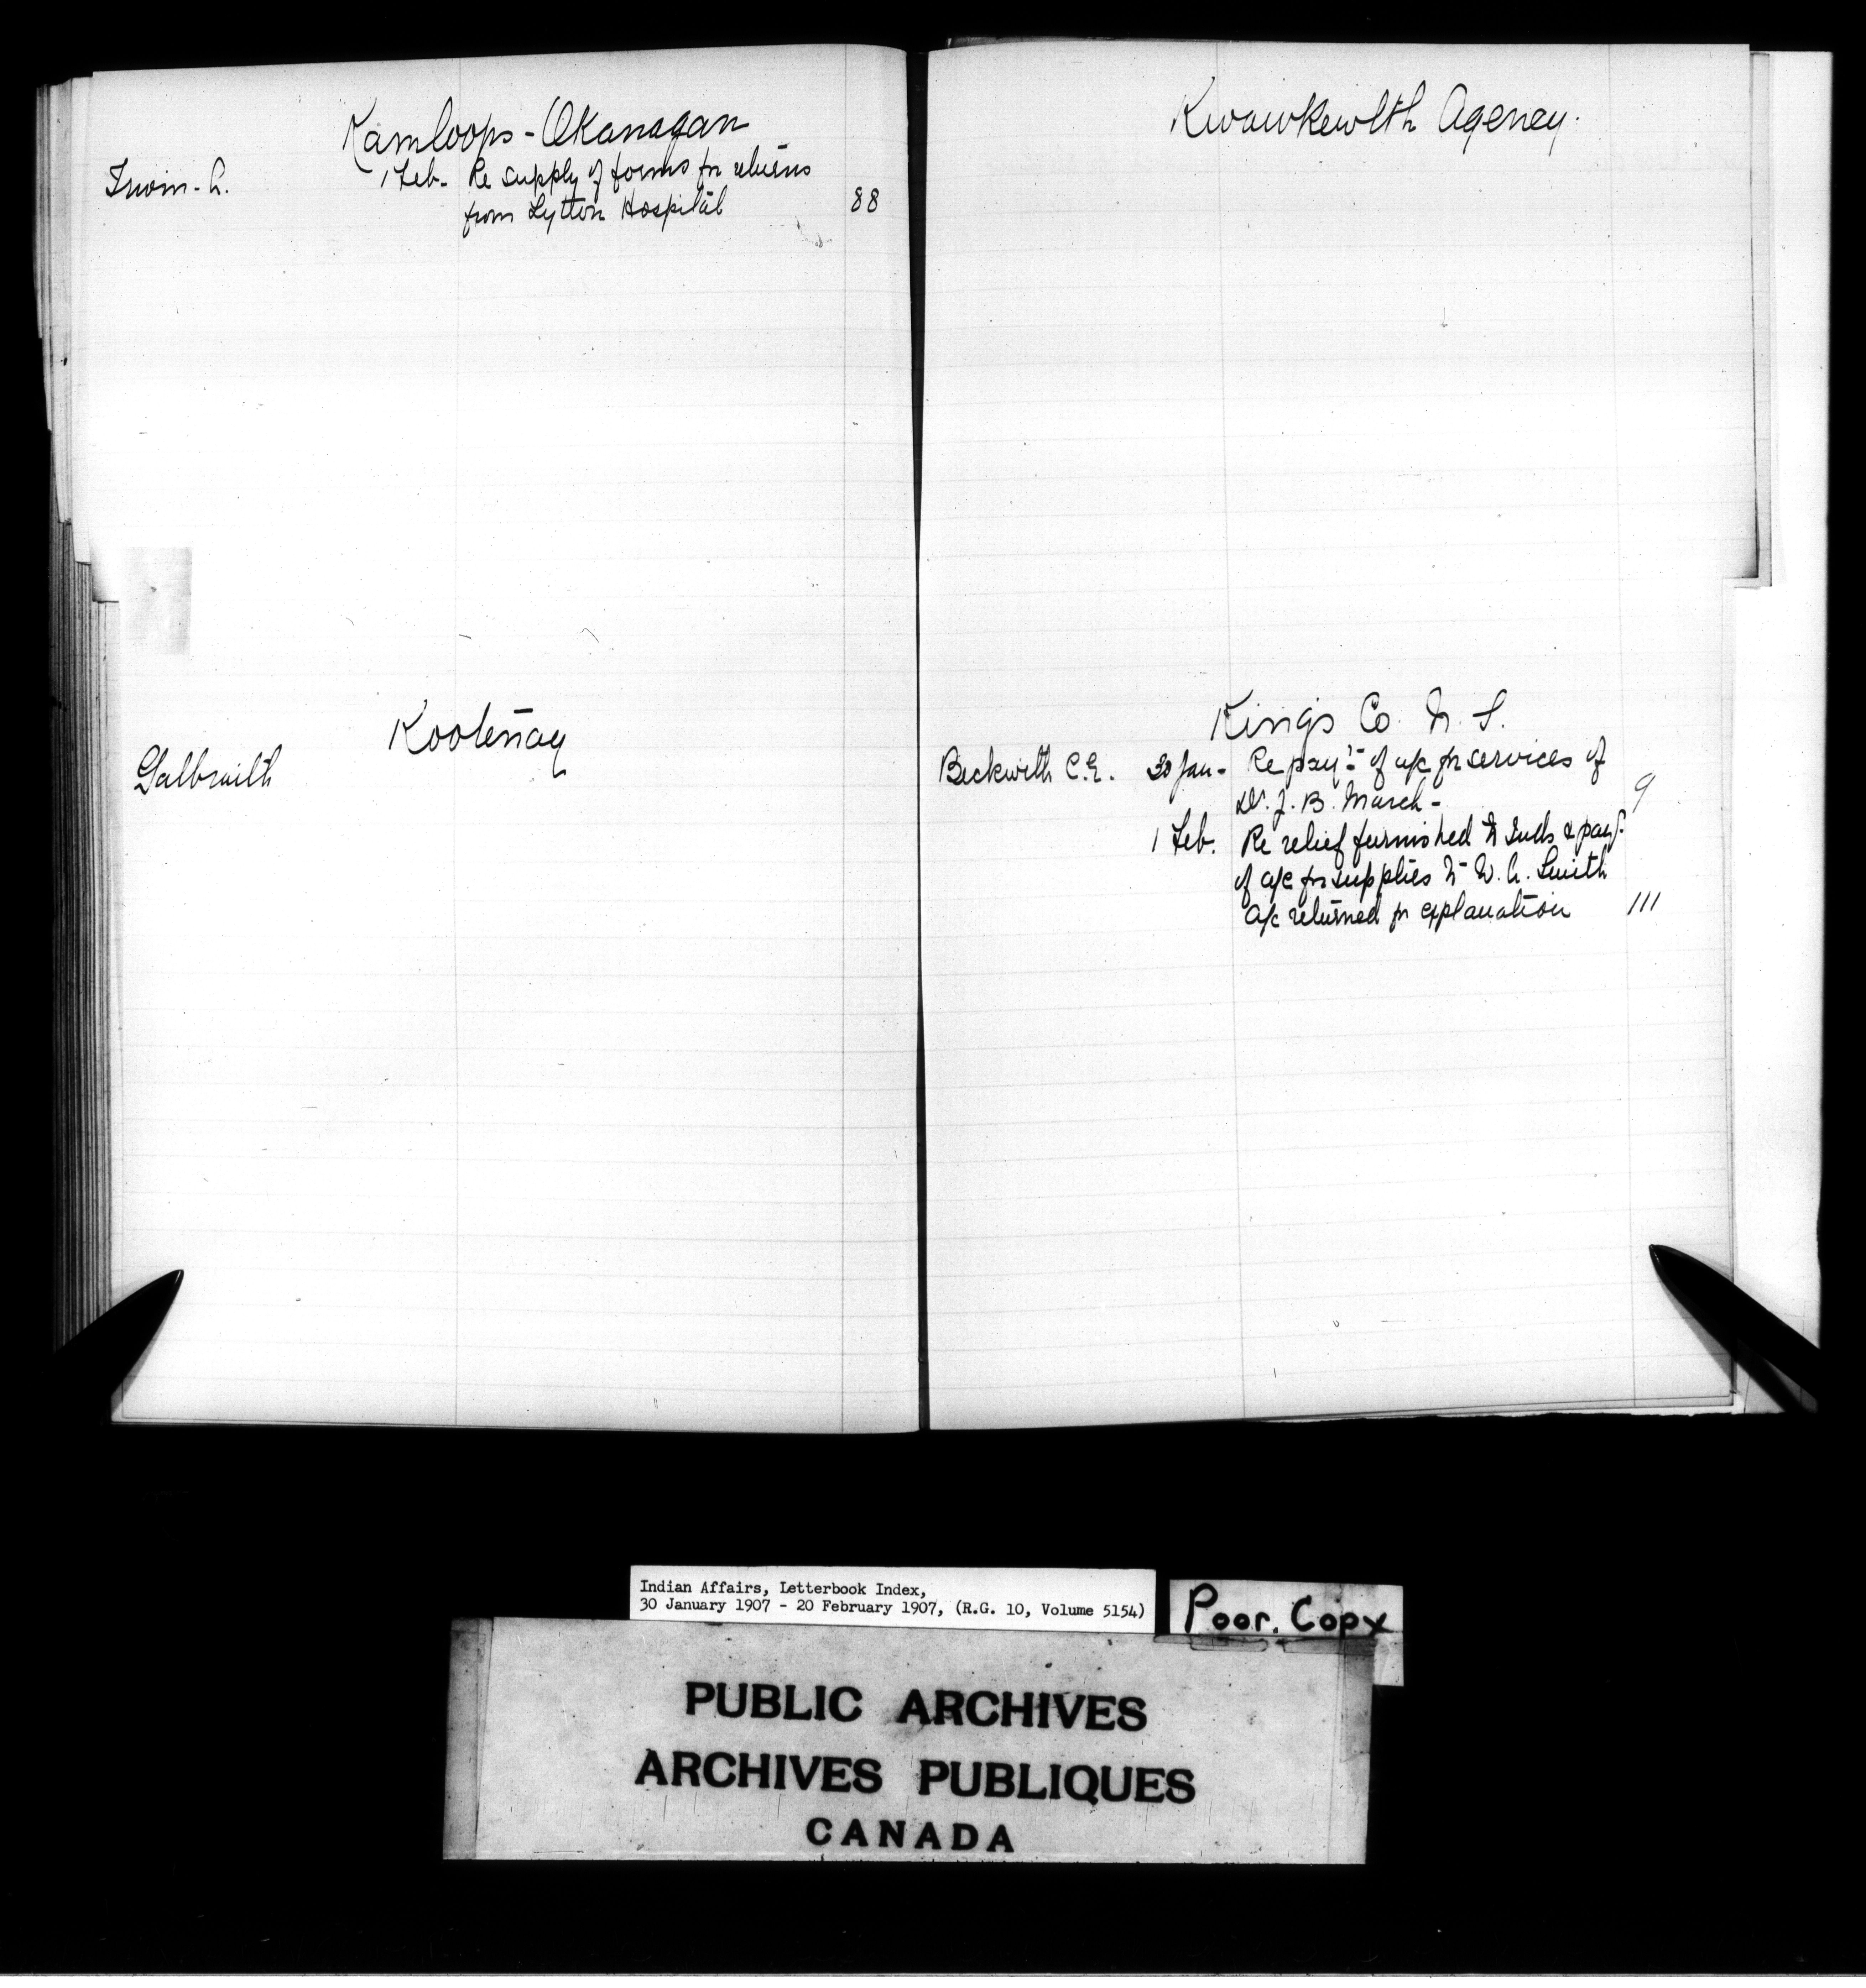 Kamloops - Okanagan
Irwin - A. 1 Feb. Re supply of forms for returns
from Lytton Hospital 88
Kootenay
Galbraith
Kwawkewlth Agency.
Kings Co. N. S.
Beckwith C.E. 30 Jan - Re payt of a/c for services of
Dr. J. B. March - 9
1 Feb. Re relief furnished to Inds & payt.
of a/c for supplies to W. A. Smith
a/c returned for explanation 111
Indian Affairs, Letterbook Index,
30 January 1907 - 20 February 1907, (R.G. 10, Volume 5154)
Poor. Copy
PUBLIC ARCHIVES
ARCHIVES PUBLIQUES
CANADA